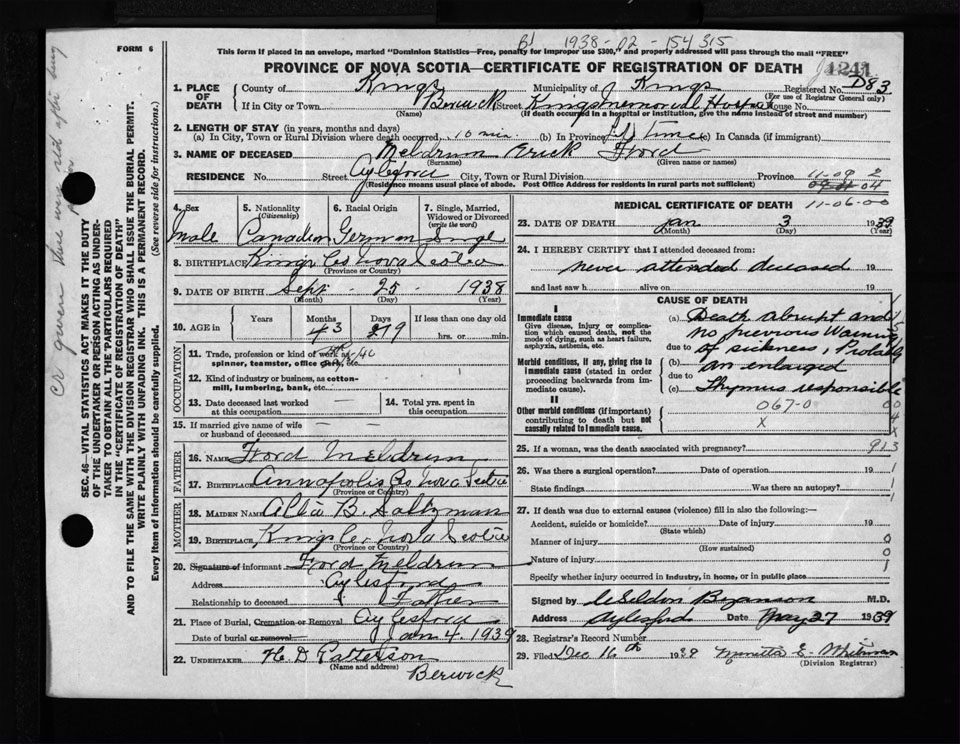 FORM 6
Bd 1938-02-154315
This form if placed in an envelope, marked "Dominion Statistics—Free, penalty for improper use $300," and properly addressed will pass through the mail "FREE"
PROVINCE OF NOVA SCOTIA—CERTIFICATE OF REGISTRATION OF DEATH
4241
1. PLACE OF DEATH County of Kings Municipality of Kings Registered No. D83
(For use of Registrar General only)
If in City or Town Berwick Street Kings memorial Hospital House No.
(Name) (If death occurred in a hospital or institution, give the name instead of street and number)
2. LENGTH OF STAY (in years, months and days)
(a) In City, Town or Rural Division where death occurred 10 min (b) In Province Time (c) In Canada (if immigrant)
3. NAME OF DECEASED Meldrum Erick Ford
(Surname) (Given name or names)
RESIDENCE No. Street Aylesford City, Town or Rural Division Province 11-09 2
(Residence means usual place of abode. Post Office Address for residents in rural parts not sufficient) 04
11-06-00
4. Sex Male
5. Nationality (Citizenship) Canadian
6. Racial Origin German
7. Single, Married, Widowed or Divorced (write the word) Single
8. BIRTHPLACE Kings Co Nova Scotia
(Province or Country)
9. DATE OF BIRTH Sept - 25 - 1938
(Month) (Day) (Year)
10. AGE in Years Months Days If less than one day
3 9 hrs. or min.
OCCUPATION
11. Trade, profession or kind of work as spinner, teamster, office clerk, etc.
12. Kind of industry or business, as cotton-mill, lumbering, bank, etc.
13. Date deceased last worked at this occupation —
14. Total yrs. spent in this occupation
15. If married give name of wife or husband of deceased — —
FATHER
16. Name Ford Meldrum
17. Birthplace Annapolis Co Nova Scotia
(Province or Country)
MOTHER
18. Maiden Name B. Saltzman
19. Birthplace Kings Co, Nova Scotia
(Province or Country)
20. Signature of informant Ford Meldrum
Address Aylesford
Relationship to deceased Father
21. Place of Burial, Cremation or Removal Aylesford
Date of burial or removal Jan 4. 1939
22. UNDERTAKER H. D Patterson
(Name and address)
Berwick
MEDICAL CERTIFICATE OF DEATH
23. DATE OF DEATH Jan 3 1939
(Month) (Day) (Year)
24. I HEREBY CERTIFY that I attended deceased from:
never attended deceased 19
and last saw h alive on 19
CAUSE OF DEATH
I
Immediate cause
Give disease, injury or complication which caused death, not the mode of dying, such as heart failure, asphyxia, asthenia, etc.
(a) Death abrupt and
no previous Warning
due to of sickness, Probably
Morbid conditions, if any, giving rise to immediate cause (stated in order proceeding backwards from immediate cause).
(b) an enlarged
due to
(c) Thymus responsible
II
Other morbid conditions (if important) contributing to death but not causally related to immediate cause.
067-0
X
25. If a woman, was the death associated with pregnancy? 913
26. Was there a surgical operation? Date of operation 19
State findings Was there an autopsy?
27. If death was due to external causes (violence) fill in also the following:—
Accident, suicide or homicide? Date of injury 19
(State which)
Manner of injury 0
(How sustained)
Nature of injury 0
Specify whether injury occurred in industry, in home, or in public place
Signed by M.D.
Address Aylesford Date May 27 1939
28. Registrar's Record Number
29. Filed Dec 16th 1939 E. Whitman
(Division Registrar)
SEC. 46—VITAL STATISTICS ACT MAKES IT THE DUTY
OF THE UNDERTAKER OR PERSON ACTING AS UNDER-
TAKER TO OBTAIN ALL THE PARTICULARS REQUIRED
IN THE "CERTIFICATE OF REGISTRATION OF DEATH"
AND TO FILE THE SAME WITH THE DIVISION REGISTRAR WHO SHALL ISSUE THE BURIAL PERMIT.
WRITE PLAINLY WITH UNFADING INK. THIS IS A PERMANENT RECORD.
Every item of information should be carefully supplied. (See reverse side for instructions.)